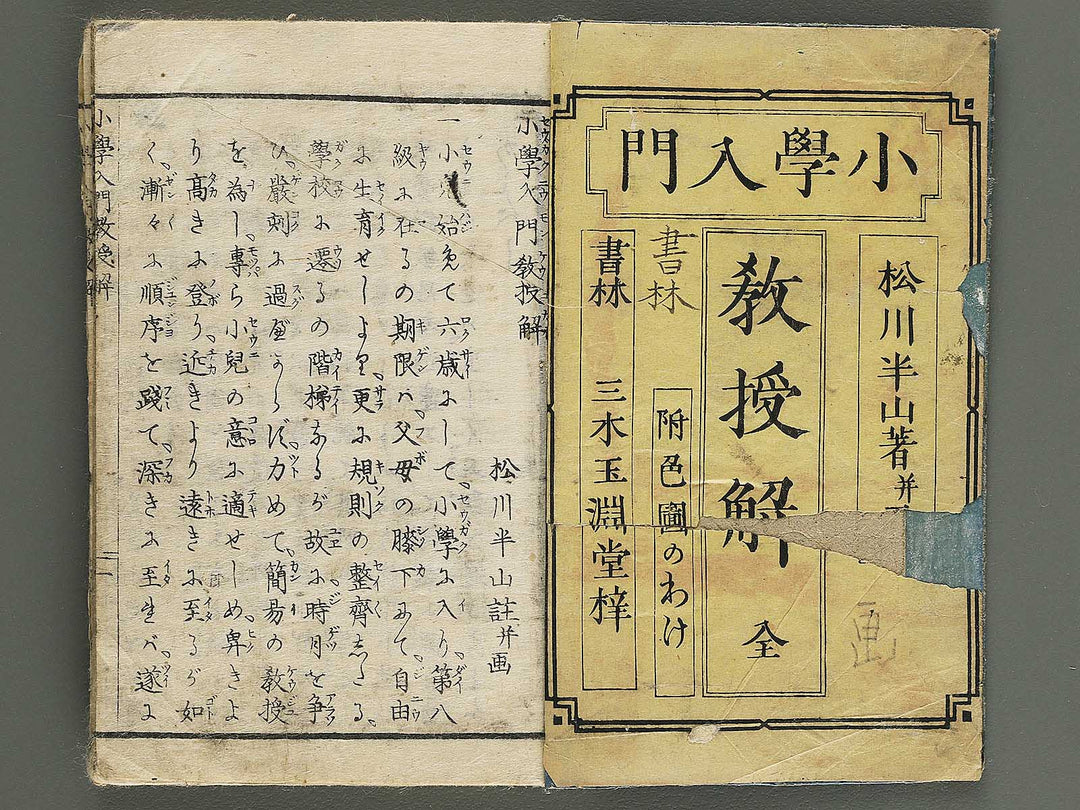 小學入門
松川半山著并
教授解 全
附色圖のわけ
書林
書林 三木玉淵堂梓
画
小學入門教授解
松川半山註并画
一小兒始免て六歳尓して小學尓入り第八
級尓在るの期限ハ父母の膝下尓て自由
尓生育せしより更尓規則の整齊志たる
學校尓遷るの階梯なるが故尓時月を争
ひ嚴刻尓過べからず力めて簡易の教授
を為し專ら小兒の意尓適せしめ卑きよ
り髙き尓登り近きより遠き尓至るが如
く漸々尓順序を踐て深き尓至らバ遂尓
小學入門教授解